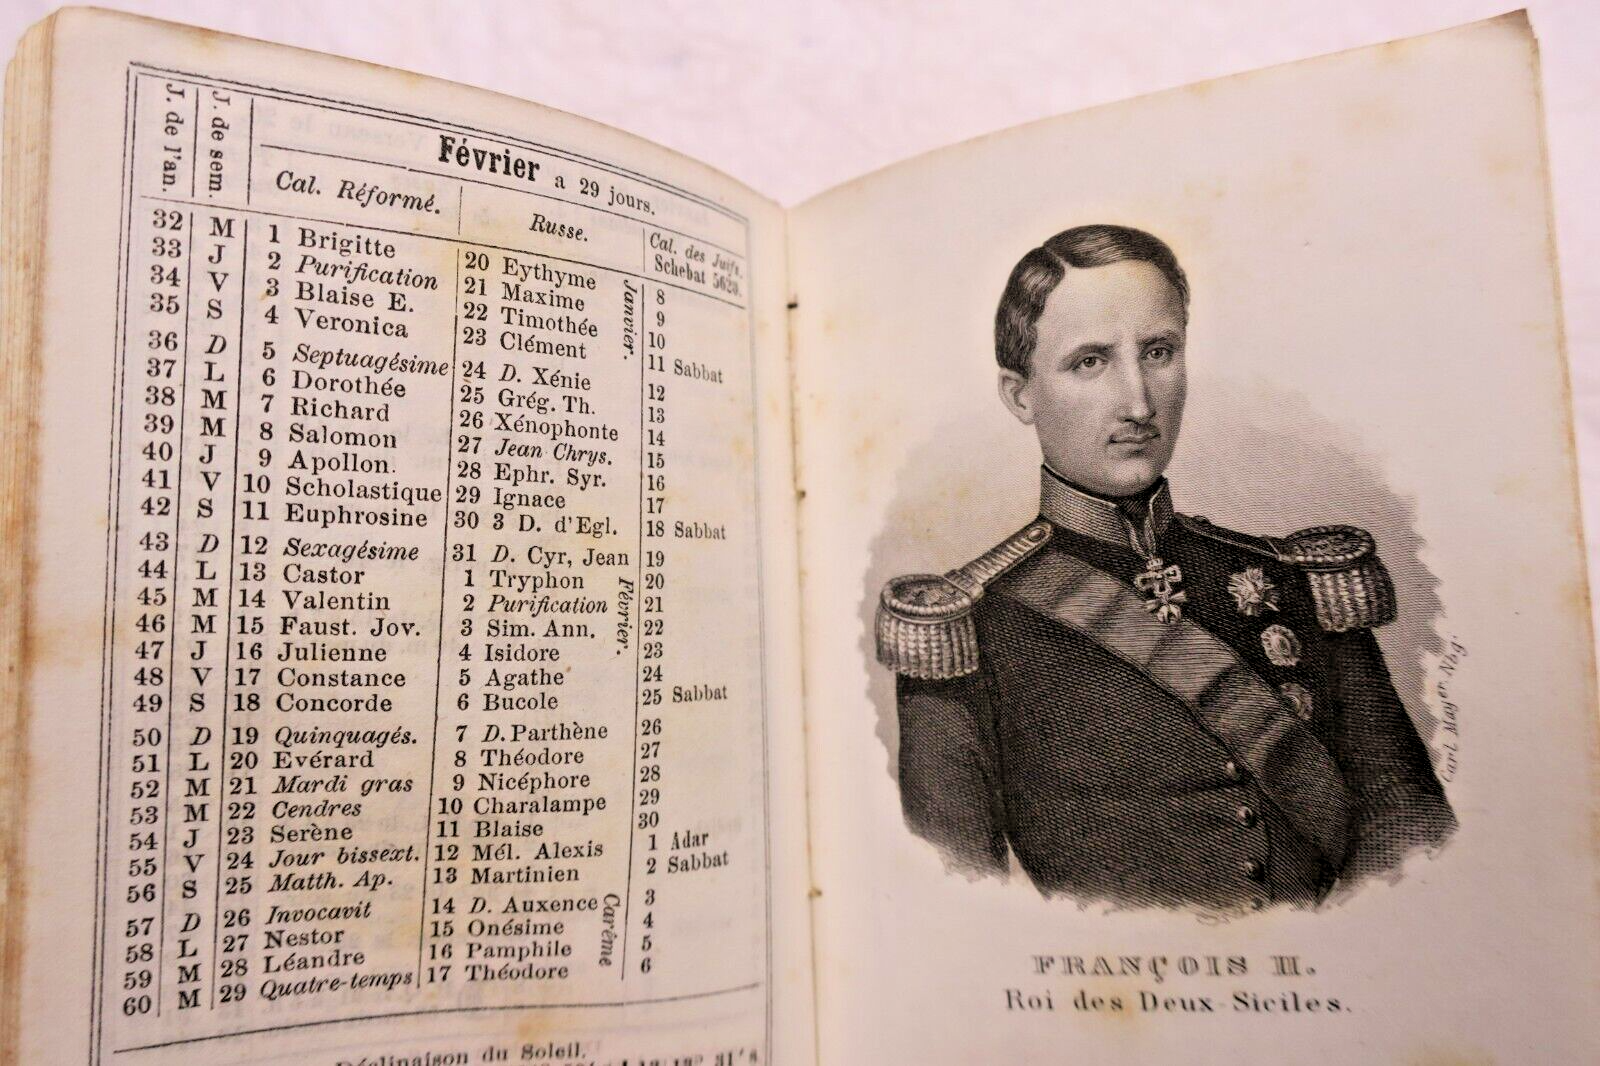 J. de l'an. J. de sem. Février a 29 jours.
Cal. Réformé. Russe. Cal. des Juifs. Schebat 5620.
32 M 1 Brigitte 20 Eythyme 8
33 J 2 Purification 21 Maxime 9
34 V 3 Blaise E. 22 Timothée 10
35 S 4 Veronica 23 Clément 11 Sabbat
Janvier.
36 D 5 Septuagésime 24 D. Xénie 12
37 L 6 Dorothée 25 Grég. Th. 13
38 M 7 Richard 26 Xénophonte 14
39 M 8 Salomon 27 Jean Chrys. 15
40 J 9 Apollon. 28 Ephr. Syr. 16
41 V 10 Scholastique 29 Ignace 17
42 S 11 Euphrosine 30 3 D. d'Egl. 18 Sabbat
43 D 12 Sexagésime 31 D. Cyr, Jean 19
44 L 13 Castor 1 Tryphon 20
45 M 14 Valentin 2 Purification 21
46 M 15 Faust. Jov. 3 Sim. Ann. 22
Février.
47 J 16 Julienne 4 Isidore 23
48 V 17 Constance 5 Agathe 24
49 S 18 Concorde 6 Bucole 25 Sabbat
50 D 19 Quinquagés. 7 D. Parthène 26
51 L 20 Evérard 8 Théodore 27
52 M 21 Mardi gras 9 Nicéphore 28
53 M 22 Cendres 10 Charalampe 29
54 J 23 Serène 11 Blaise 30
55 V 24 Jour bissext. 12 Mél. Alexis 1 Adar
56 S 25 Matth. Ap. 13 Martinien 2 Sabbat
57 D 26 Invocavit 14 D. Auxence 3
58 L 27 Nestor 15 Onésime 4
59 M 28 Léandre 16 Pamphile 5
60 M 29 Quatre-temps 17 Théodore 6
Carême
Déclinaison du Soleil.
Carl Mayer Nbg.
FRANÇOIS II.
Roi des Deux-Siciles.